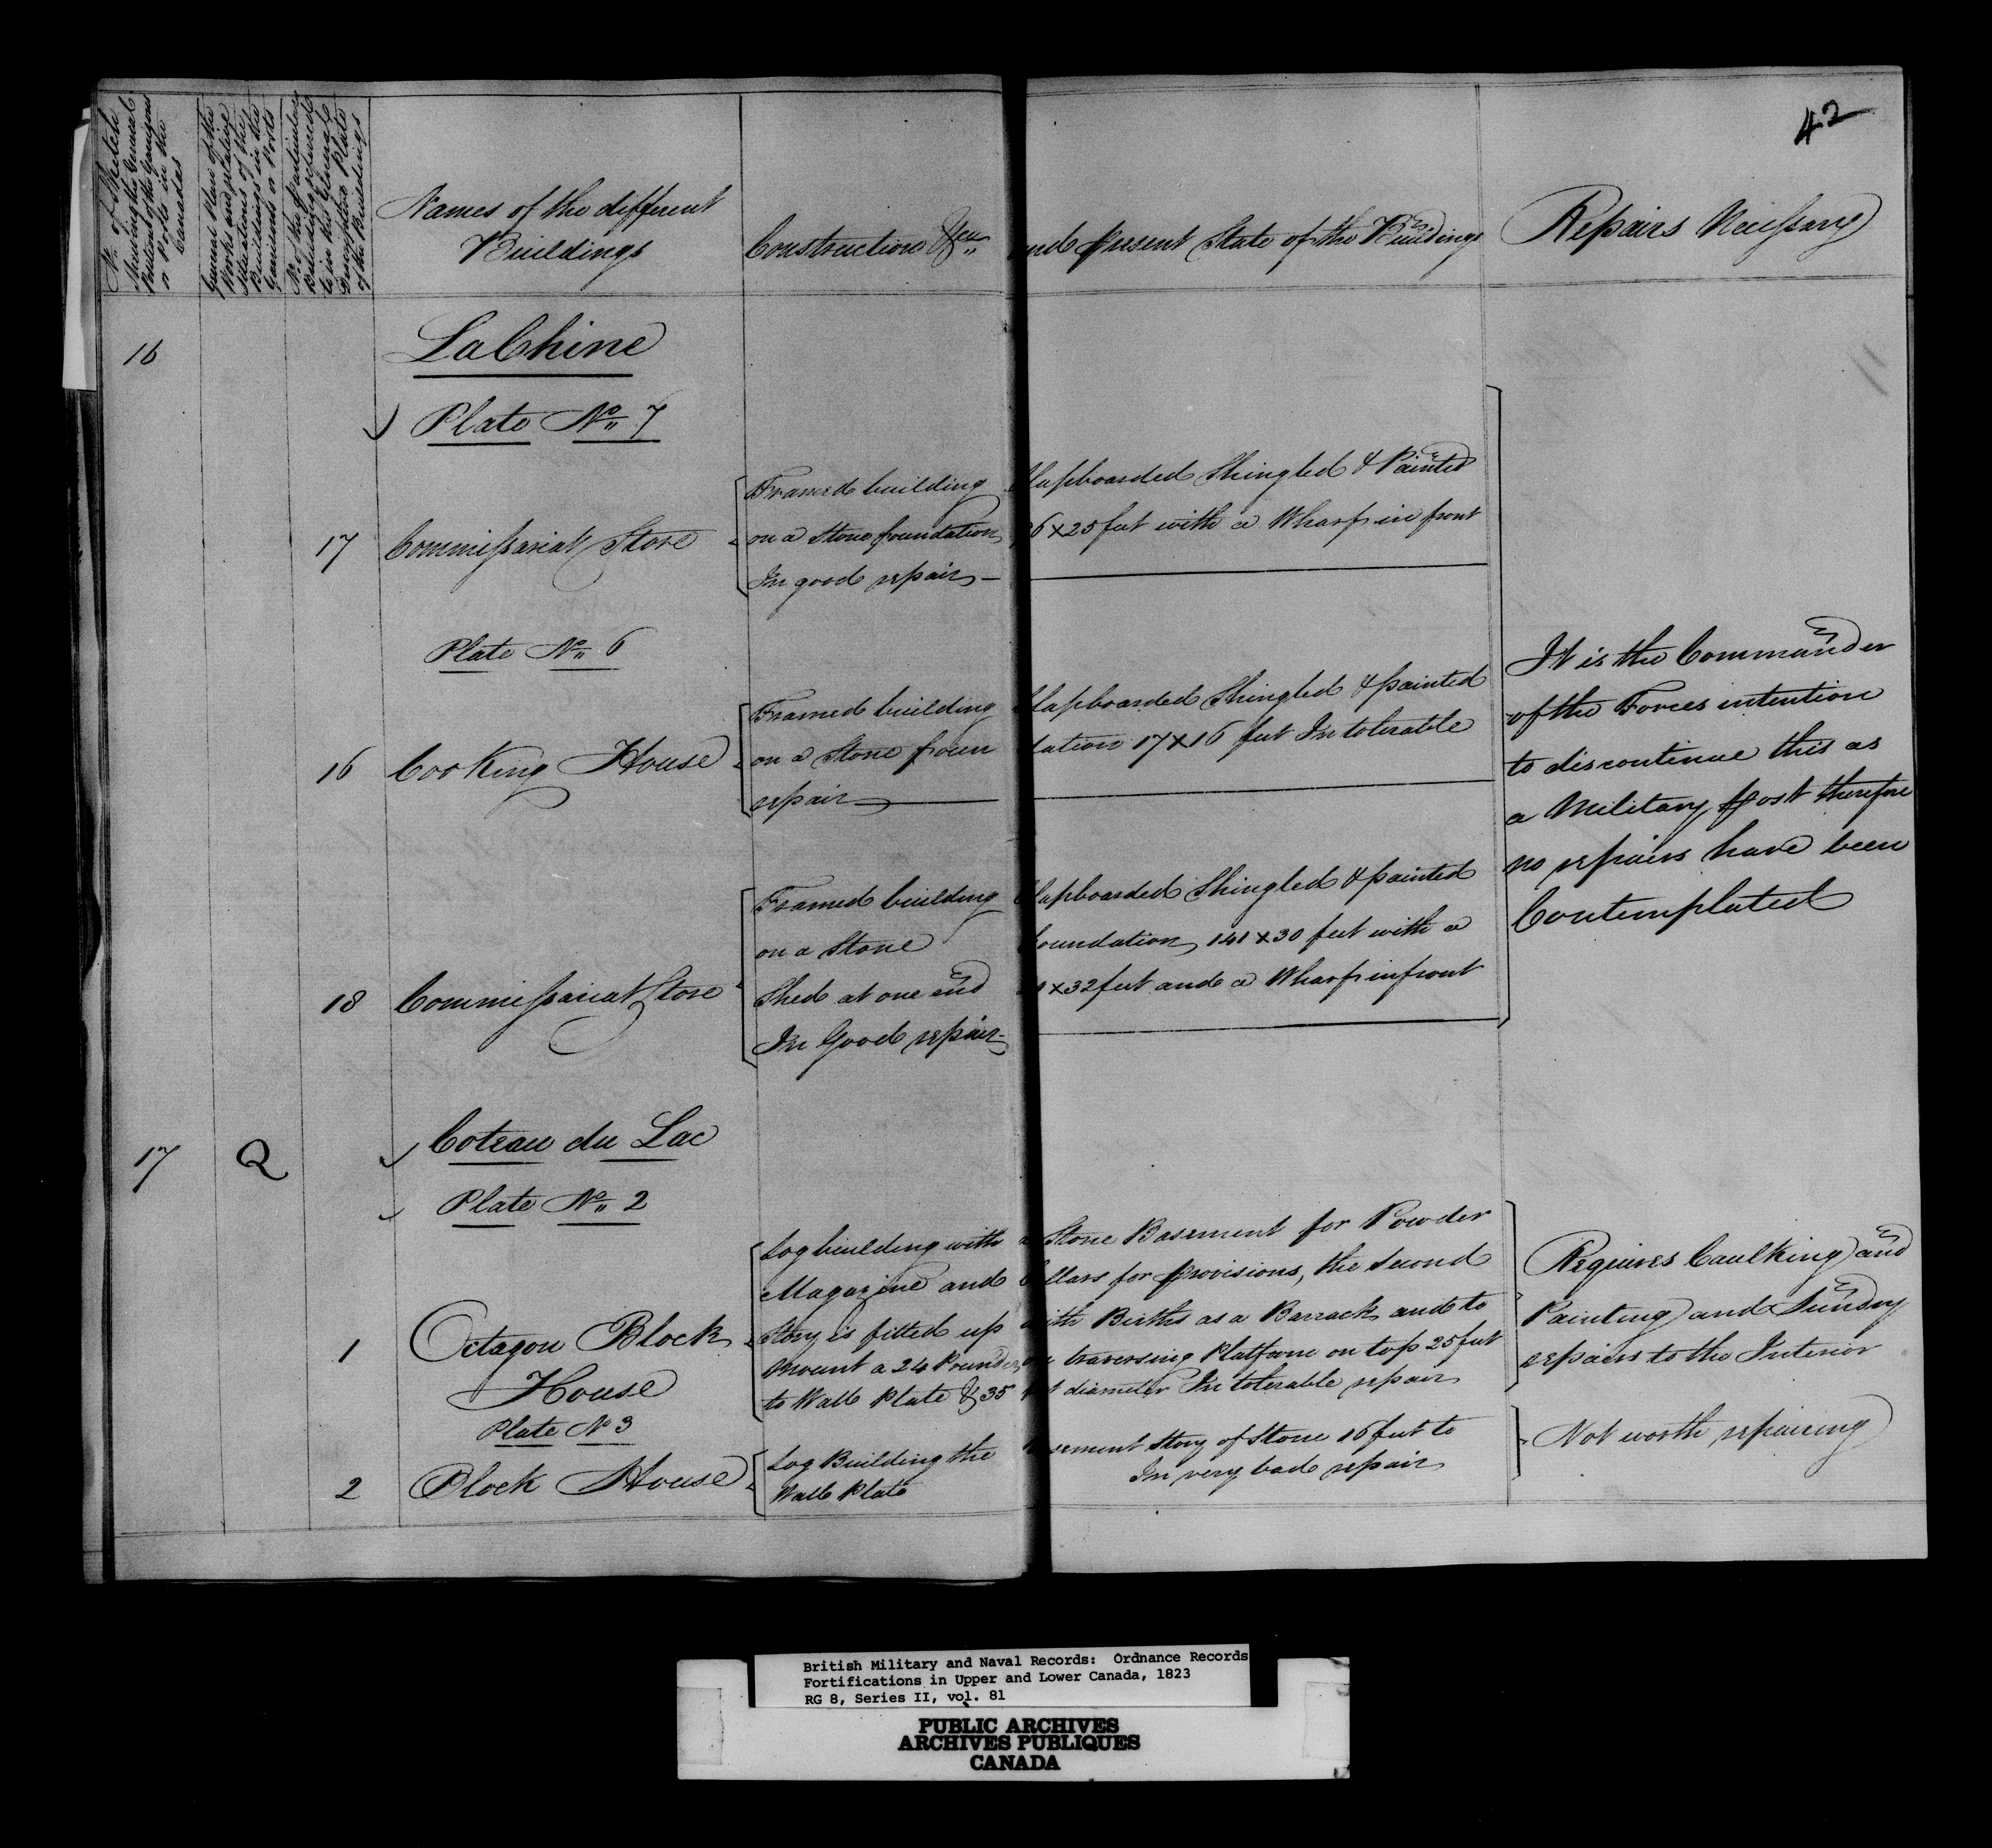 42
No. of Sketch
shewing the General
Outline of the Garrisons
or Posts in the
Canadas
General Plan of the
Works and relative
situations of the
Buildings in the
Garrisons or Posts
No. of the particular
Buildings referred
to in the General &
descriptive Plate
of the Buildings
Names of the different
Buildings
Construction &ca and present State of the Buildings
Repairs Necessary
16
LaChine
Plate No. 7
17 Commissariat Store
Framed building Clapboarded Shingled & Painted
on a Stone foundation 6 x 25 feet with a Wharf in front
In good repair
Plate No. 6
16 Cooking House
Framed building Clapboarded Shingled & painted
on a Stone foundation 17 x 16 feet In tolerable
repair
18 Commissariat Store
Framed building Clapboarded Shingled & painted
on a Stone foundation, 141 x 30 feet with a
Shed at one end x 32 feet and a Wharf in front
In Good repair
It is the Commander
of the Forces intention
to discontinue this as
a Military post therefore
no repairs have been
Contemplated
17 Q Coteau du Lac
Plate No. 2
1 Octagon Block
House
Log building with a Stone Basement for Powder
Magazine and Cellars for provisions, the second
Story is fitted up with Births as a Barrack and to
mount a 24 Pounder on traversing Platform on top 25 feet
to Wall Plate & 35 feet diameter In tolerable repair
Requires Caulking and
Painting and Sundry
repairs to the Interior
Plate No 3
2 Block House
Log Building the basement story of Stone 16 feet to
Wall Plate In very bad repair
Not worth repairing
British Military and Naval Records: Ordnance Records
Fortifications in Upper and Lower Canada, 1823
RG 8, Series II, vol. 81
PUBLIC ARCHIVES
ARCHIVES PUBLIQUES
CANADA